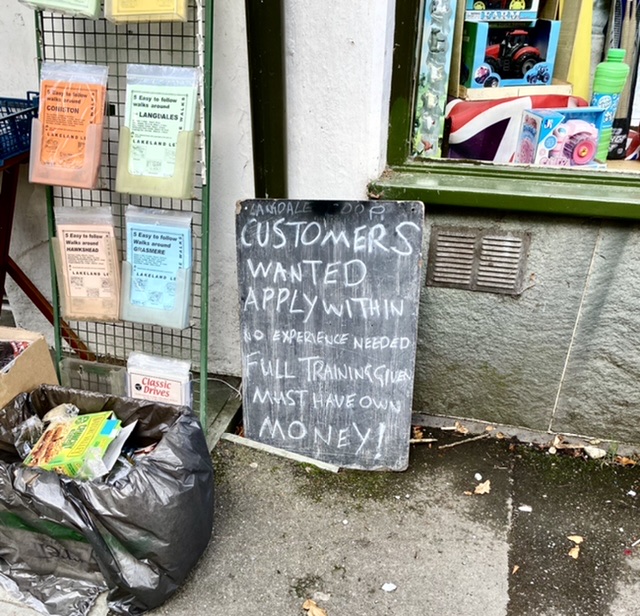 5 Easy to follow
walks around
CONISTON
LAKELAND LE
5 Easy to follow
Walks around
LANGDALES
LAKELAND LE
5 Easy to follow
Walks around
HAWKSHEAD
LAKELAND LE
5 Easy to follow
Walks around
GRASMERE
LAKELAND LE
Classic
Drives
CUSTOMERS
WANTED
APPLY WITHIN
NO EXPERIENCE NEEDED
FULL TRAINING GIVEN
MUST HAVE OWN
MONEY!